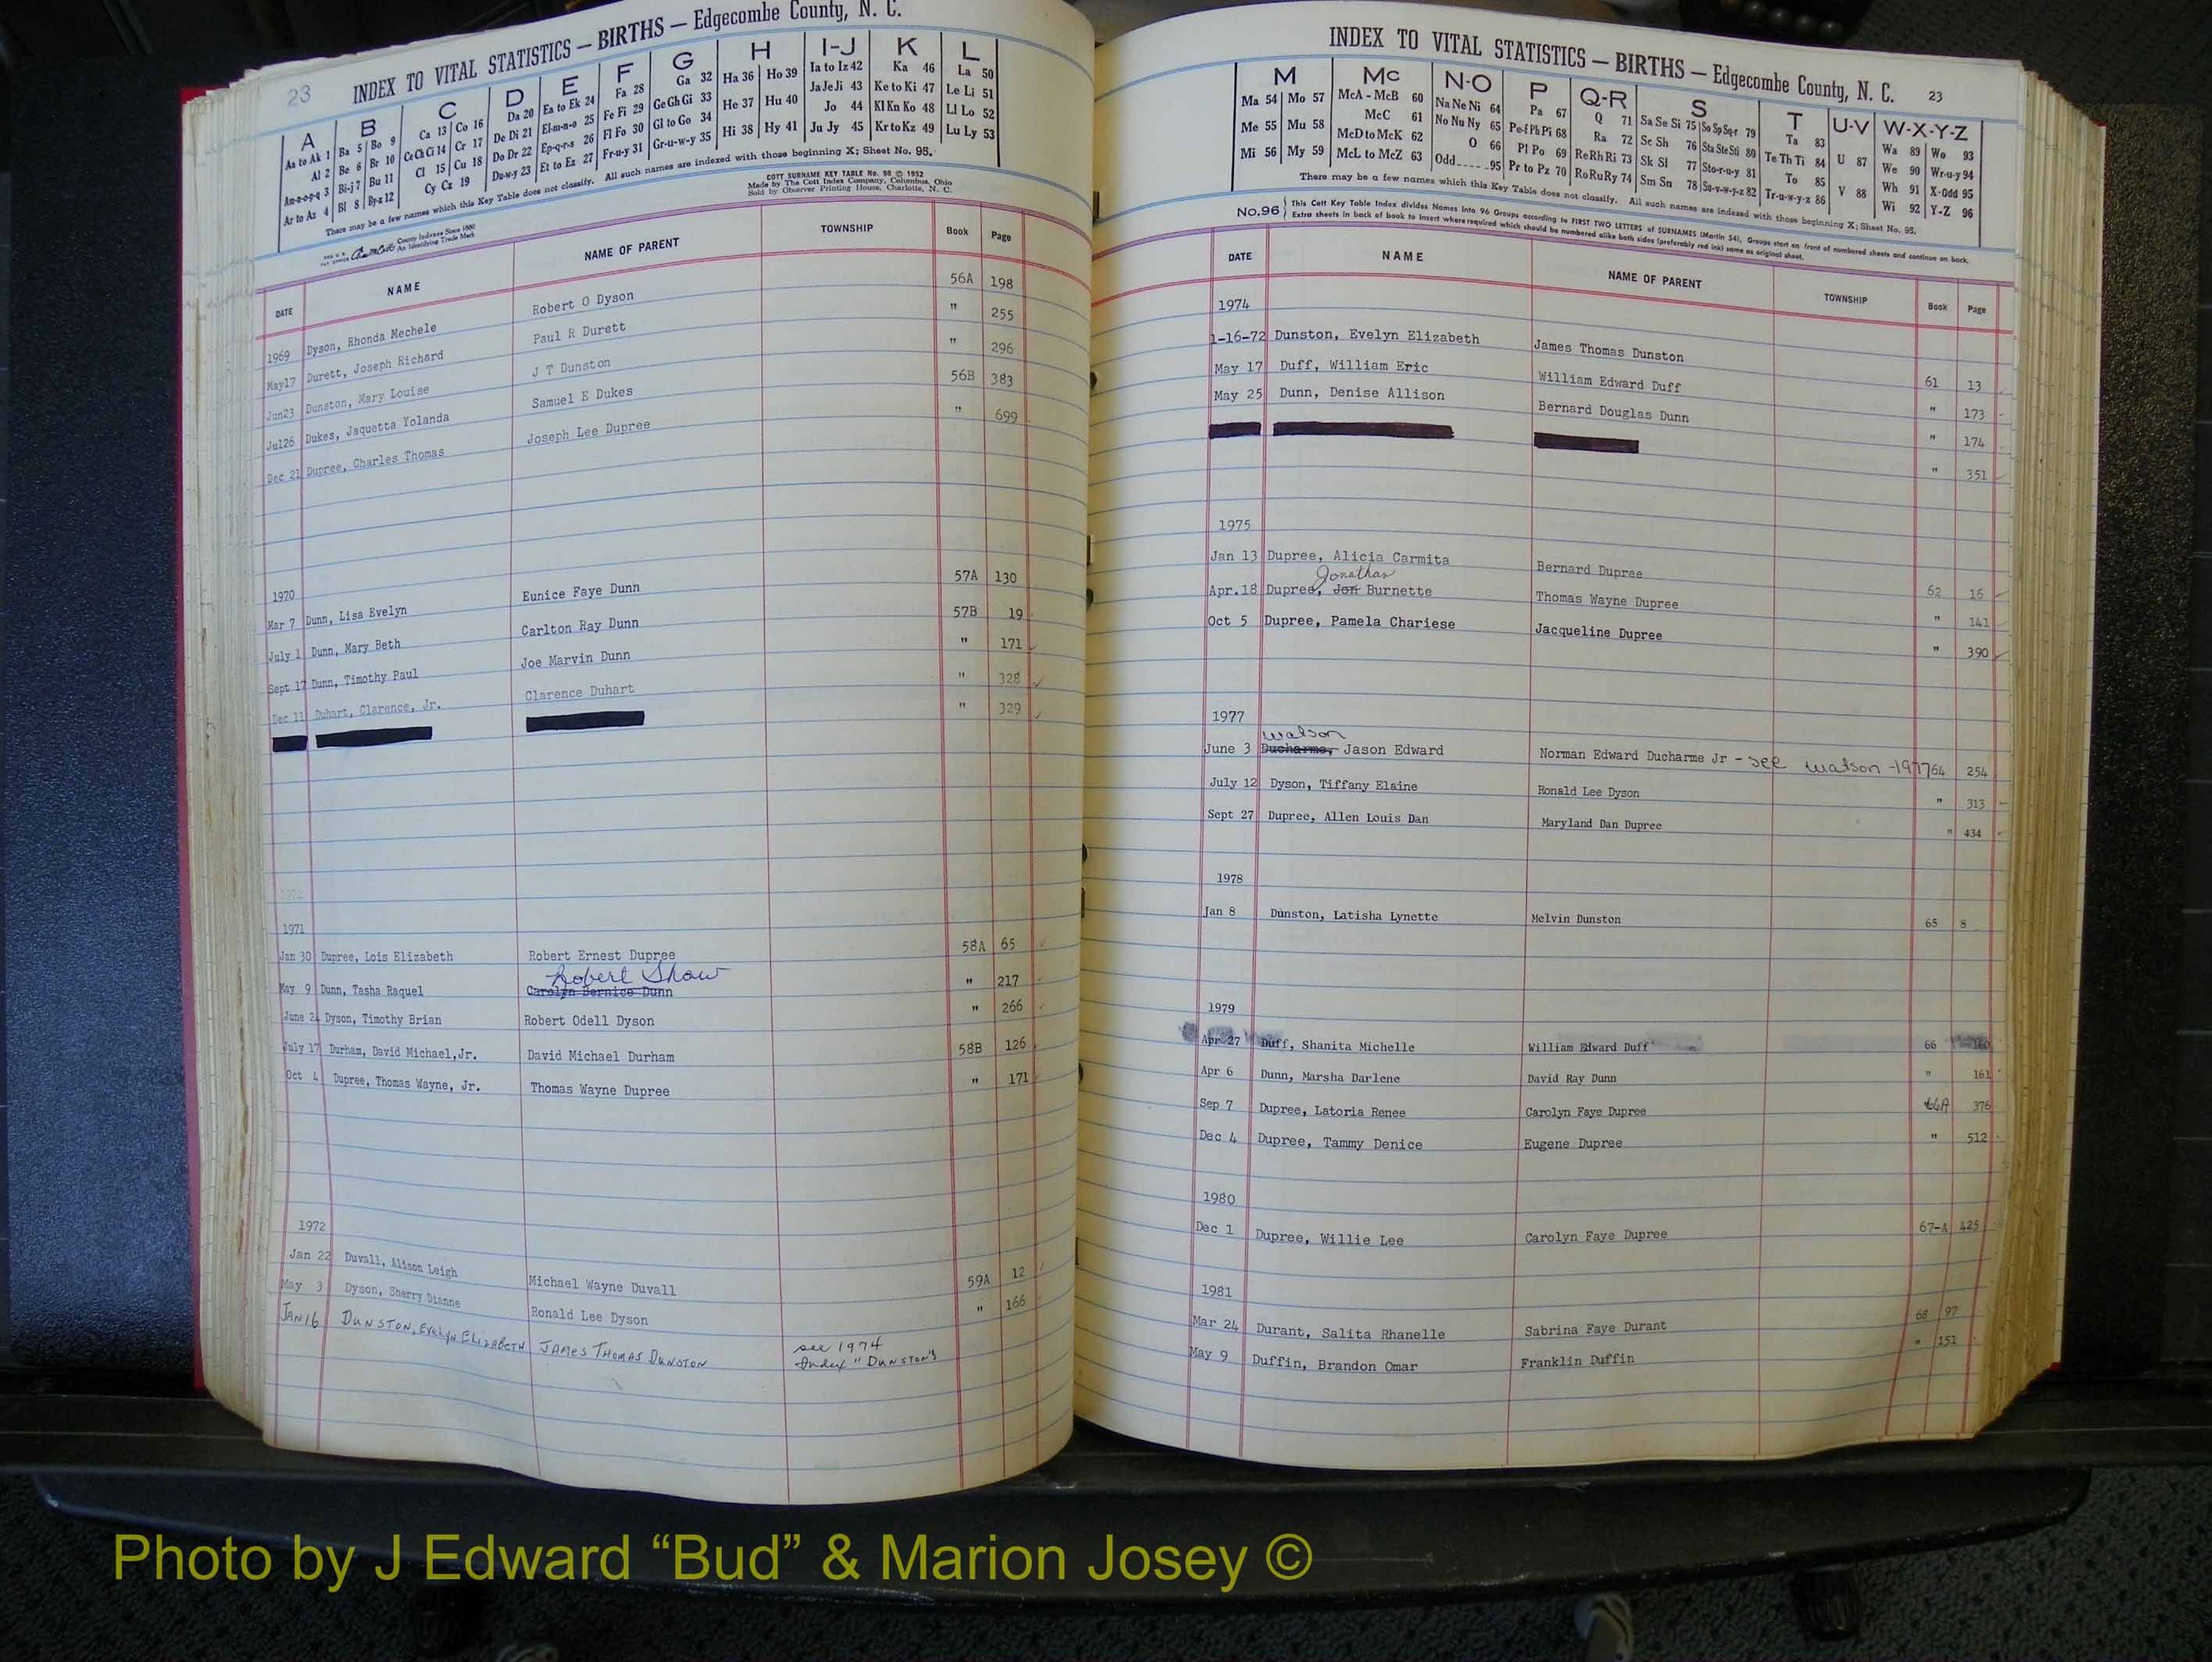 23 INDEX TO VITAL STATISTICS — BIRTHS — Edgecombe County, N. C.
A B C D E F G H I-J K L
Aa to Ak 1 Ba 5 Bo 9 Ca 13 Co 16 Da 20 Ea to Ek 24 Fa 28 Ga 32 Ha 36 Ho 39 Ia to Iz 42 Ka 46 La 50
Al 2 Be 6 Br 10 Ce Ch Ci 14 Cr 17 De Di 21 El-m-n-o 25 Fe Fi 29 Ge Gh Gi 33 He 37 Hu 40 Ja Je Ji 43 Ke to Ki 47 Le Li 51
Am-n-o-p-q 3 Bi-j 7 Bu 11 Cl 15 Cu 18 Do Dr 22 Ep-q-r-s 26 Fl Fo 30 Gl to Go 34 Hi 38 Hy 41 Jo 44 Kl Kn Ko 48 Ll Lo 52
Ar to Az 4 Bl 8 By-z 12 Cy Cz 19 Du-w-y 23 Et to Ez 27 Fr-u-y 31 Gr-u-w-y 35 Ju Jy 45 Kr to Kz 49 Lu Ly 53
There may be a few names which this Key Table does not classify. All such names are indexed with those beginning X; Sheet No. 95.
COTT SURNAME KEY TABLE No. 96 © 1952
Made by The Cott Index Company, Columbus, Ohio
Sold by Observer Printing House, Charlotte, N. C.
County Indexes Since 1888
An Identifying Trade Mark
DATE NAME NAME OF PARENT TOWNSHIP Book Page
1969 Dyson, Rhonda Mechele Robert O Dyson 56A 198
May17 Durett, Joseph Richard Paul R Durett " 255
Jun23 Dunston, Mary Louise J T Dunston " 296
Jul26 Dukes, Jaquetta Yolanda Samuel E Dukes 56B 383
Dec 21 Dupree, Charles Thomas Joseph Lee Dupree " 699
1970
Mar 7 Dunn, Lisa Evelyn Eunice Faye Dunn 57A 130
July 1 Dunn, Mary Beth Carlton Ray Dunn 57B 19
Sept 17 Dunn, Timothy Paul Joe Marvin Dunn " 171
Dec 11 Duhart, Clarence, Jr. Clarence Duhart " 328
" 329
1971
Jan 30 Dupree, Lois Elizabeth Robert Ernest Dupree 58A 65
Robert Shaw
May 9 Dunn, Tasha Raquel Carolyn Bernice Dunn " 217
June 24 Dyson, Timothy Brian Robert Odell Dyson " 266
July 17 Durham, David Michael,Jr. David Michael Durham 58B 126
Oct 4 Dupree, Thomas Wayne, Jr. Thomas Wayne Dupree " 171
1972
Jan 22 Duvall, Alison Leigh Michael Wayne Duvall 59A 12
May 3 Dyson, Sherry Dianne Ronald Lee Dyson " 166
JAN 16 DUNSTON, EVELYN ELIZABETH JAMES THOMAS DUNSTON see 1974
Index "DUNSTON"
INDEX TO VITAL STATISTICS — BIRTHS — Edgecombe County, N. C. 23
M Mc N-O P Q-R S T U-V W-X-Y-Z
Ma 54 Mo 57 McA - McB 60 Na Ne Ni 64 Pa 67 Q 71 Sa Se Si 75 So Sp Sq-r 79 Ta 83 Wa 89 Wo 93
Me 55 Mu 58 McC 61 No Nu Ny 65 Pe-f Ph Pi 68 Ra 72 Sc Sh 76 Sta Ste Sti 80 Te Th Ti 84 U 87 We 90 Wr-u-y 94
Mi 56 My 59 McD to McK 62 O 66 Pl Po 69 Re Rh Ri 73 Sk Sl 77 Sto-r-u-y 81 To 85 Wh 91 X-Odd 95
McL to McZ 63 Odd 95 Pr to Pz 70 Ro Ru Ry 74 Sm Sn 78 Su-v-w-y-z 82 Tr-u-w-y-z 86 V 88 Wi 92 Y-Z 96
There may be a few names which this Key Table does not classify. All such names are indexed with those beginning X; Sheet No. 95.
No.96 This Cott Key Table Index divides Names into 96 Groups according to FIRST TWO LETTERS of SURNAMES (Martin 54), Groups start on front of numbered sheets and continue on back.
Extra sheets in back of book to insert where required which should be numbered alike both sides (preferably red ink) same as original sheet.
DATE NAME NAME OF PARENT TOWNSHIP Book Page
1974
1-16-72 Dunston, Evelyn Elizabeth James Thomas Dunston 61 13
May 17 Duff, William Eric William Edward Duff " 173
May 25 Dunn, Denise Allison Bernard Douglas Dunn " 174
" 351
1975
Jan 13 Dupree, Alicia Carmita Bernard Dupree 62 16
Jonathan
Apr.18 Dupree, Jon Burnette Thomas Wayne Dupree " 141
Oct 5 Dupree, Pamela Chariese Jacqueline Dupree " 390
1977
Watson
June 3 Ducharme, Jason Edward Norman Edward Ducharme Jr - see Watson -1977 64 254
July 12 Dyson, Tiffany Elaine Ronald Lee Dyson " 313
Sept 27 Dupree, Allen Louis Dan Maryland Dan Dupree " 434
1978
Jan 8 Dunston, Latisha Lynette Melvin Dunston 65 8
1979
Apr 27 Duff, Shanita Michelle William Edward Duff 66 160
Apr 6 Dunn, Marsha Darlene David Ray Dunn " 161
Sep 7 Dupree, Latoria Renee Carolyn Faye Dupree 66A 376
Dec 4 Dupree, Tammy Denice Eugene Dupree " 512
1980
Dec 1 Dupree, Willie Lee Carolyn Faye Dupree 67-A 425
1981
Mar 24 Durant, Salita Rhanelle Sabrina Faye Durant 68 97
May 9 Duffin, Brandon Omar Franklin Duffin " 151
Photo by J Edward “Bud” & Marion Josey ©